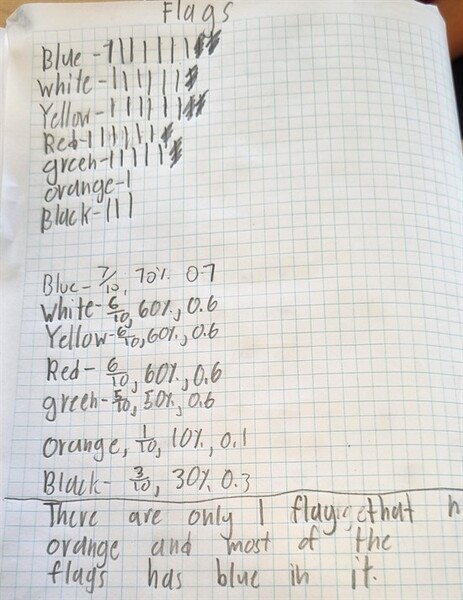 Flags
Blue - 1111111
White - 111111
Yellow - 111111
Red - 111111
green - 11111
orange - 1
Black - 111
Blue - 7/10, 70%. 0.7
White - 6/10, 60%, 0.6
Yellow - 6/10, 60%, 0.6
Red - 6/10, 60%, 0.6
green - 5/10, 50%, 0.6
Orange, 1/10, 10%, 0.1
Black - 3/10, 30% 0.3
There are only 1 flag that h
orange and most of the
flags has blue in it.